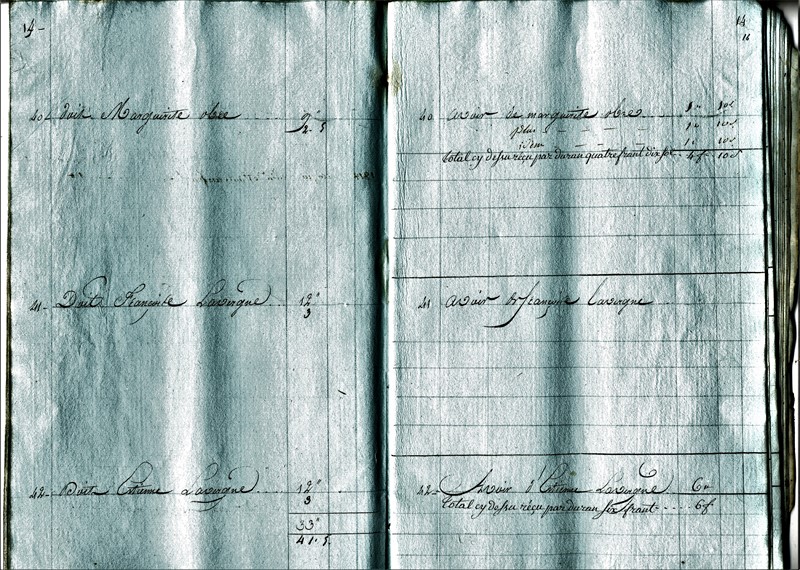 14-
40 doit Marguerite obre 9"
2.5
41 Doit Françoise Lavergne 12"
3
42 Doit Etienne Lavergne 12"
3
33"
41.5
14
16
40 avoir de marguerite obre 1" 10s
plus 1" 10s
idem 1" 10s
total cy dessu reçu par duran quatre frant dix sol 4f 10s
41 avoir de françoise lavergne
42 Avoir d'Etienne Lavergne 6"
total cy dessu reçu par duran six frant 6f